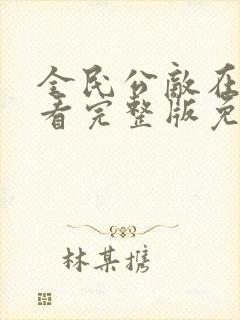 全民公敌在
看完整版免
林某携